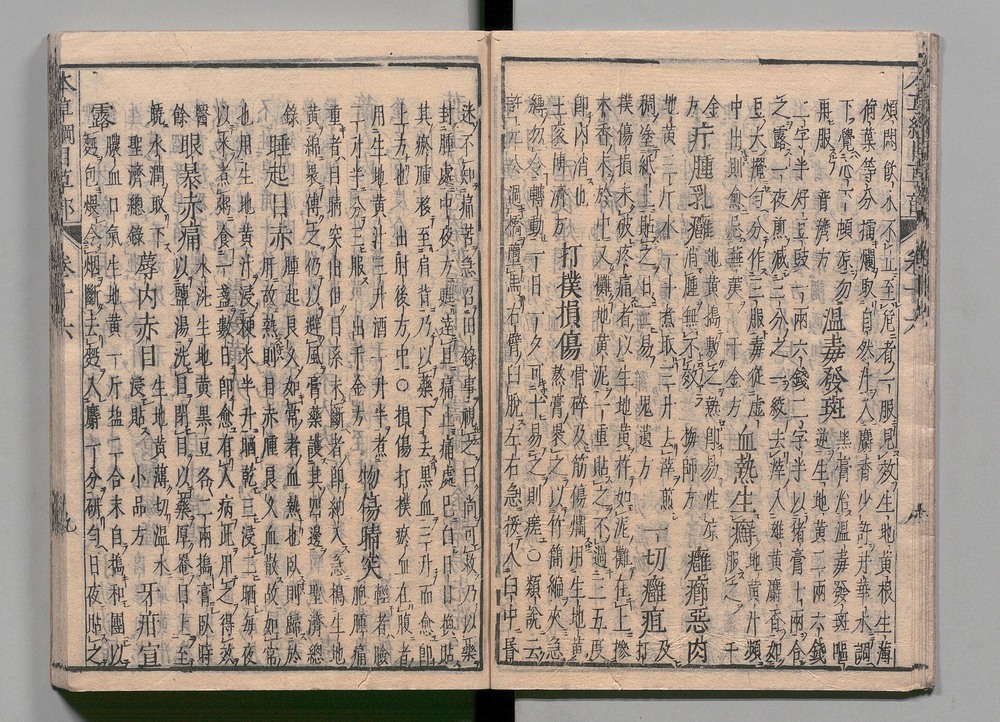 煩悶飲水不止至危者一服見效生地黃根生薄
荷葉等分擂爛取自然汁入麝香少許井華水調
下覺心下頓涼勿再服 普濟方 溫毒發斑 黑膏治溫毒發斑嘔逆生地黃二兩六錢
二字半好豆豉一兩六錢二字半以猪膏十兩合
之露一夜煎減三分之一絞去滓入雄黃麝香如
豆大攪勻分作三服毒從皮中出則愈忌蕪荑 千金方 血熱生癬 地黃汁頻服之
千金方 疔腫乳癰 地黃搗敷之熱即易性涼消腫無不效 梅師方 癰癤惡肉
地黃三斤水一斗煮取三升去滓煎稠塗紙上貼之日三易 鬼遺方 一切癰疽 及打
撲傷損未破疼痛者以生地黃杵如泥攤在上摻
木香末於中又攤地黃泥一重貼之不過三五度
即內消也 打撲損傷 骨碎及筋傷爛用生地黃熬膏裹之以竹簡編夾急
縛勿令轉動一日一夕可十易之則瘥〇類說云
許元公過橋墮馬右臂臼脫左右急挼入臼中昏
迷不知痛苦急召田錄事視之曰尚可救乃以藥
封腫處中夜方甦達旦痛止痛處已白日日換貼
其瘀腫移至肩背乃以藥下去黑血三升而愈即
上方也出肘後方中〇損傷打撲瘀血在腹者
用生地黃汁三升酒一升半煮二升半分三服 出千金方 物傷睛突 輕者瞼胞腫痛
重者目睛突出但目系未斷者即納入急搗生地
黃綿裹傅之仍以避風膏藥護其四邊 聖濟總錄 睡起目赤 腫起良久如常者血熱也臥則血歸於
肝故熱則目赤腫良久血散故如常也用生地黃汁浸粳米半升晒乾三浸三晒每夜
以米煮粥食一盞數日即愈有人病此用之得效
醫餘 眼暴赤痛 水洗生地黃黑豆各二兩搗膏臥時以鹽湯洗目閉目以藥厚罨目上至
曉水潤取下 聖濟總錄 蓐內赤目 生地黃薄切溫水浸貼 小品方 牙疳宣
露膿血口氣生地黃一斤鹽二合末自搗和團以
麪包煨令烟斷去麪入麝一分研勻日夜貼之